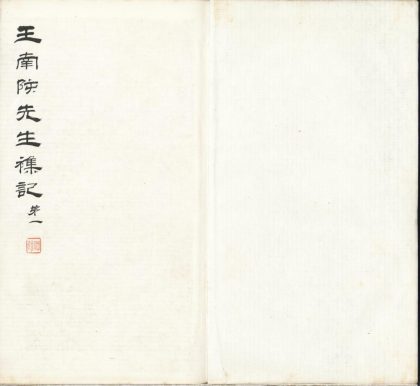 王南陔先生襍記
弟一